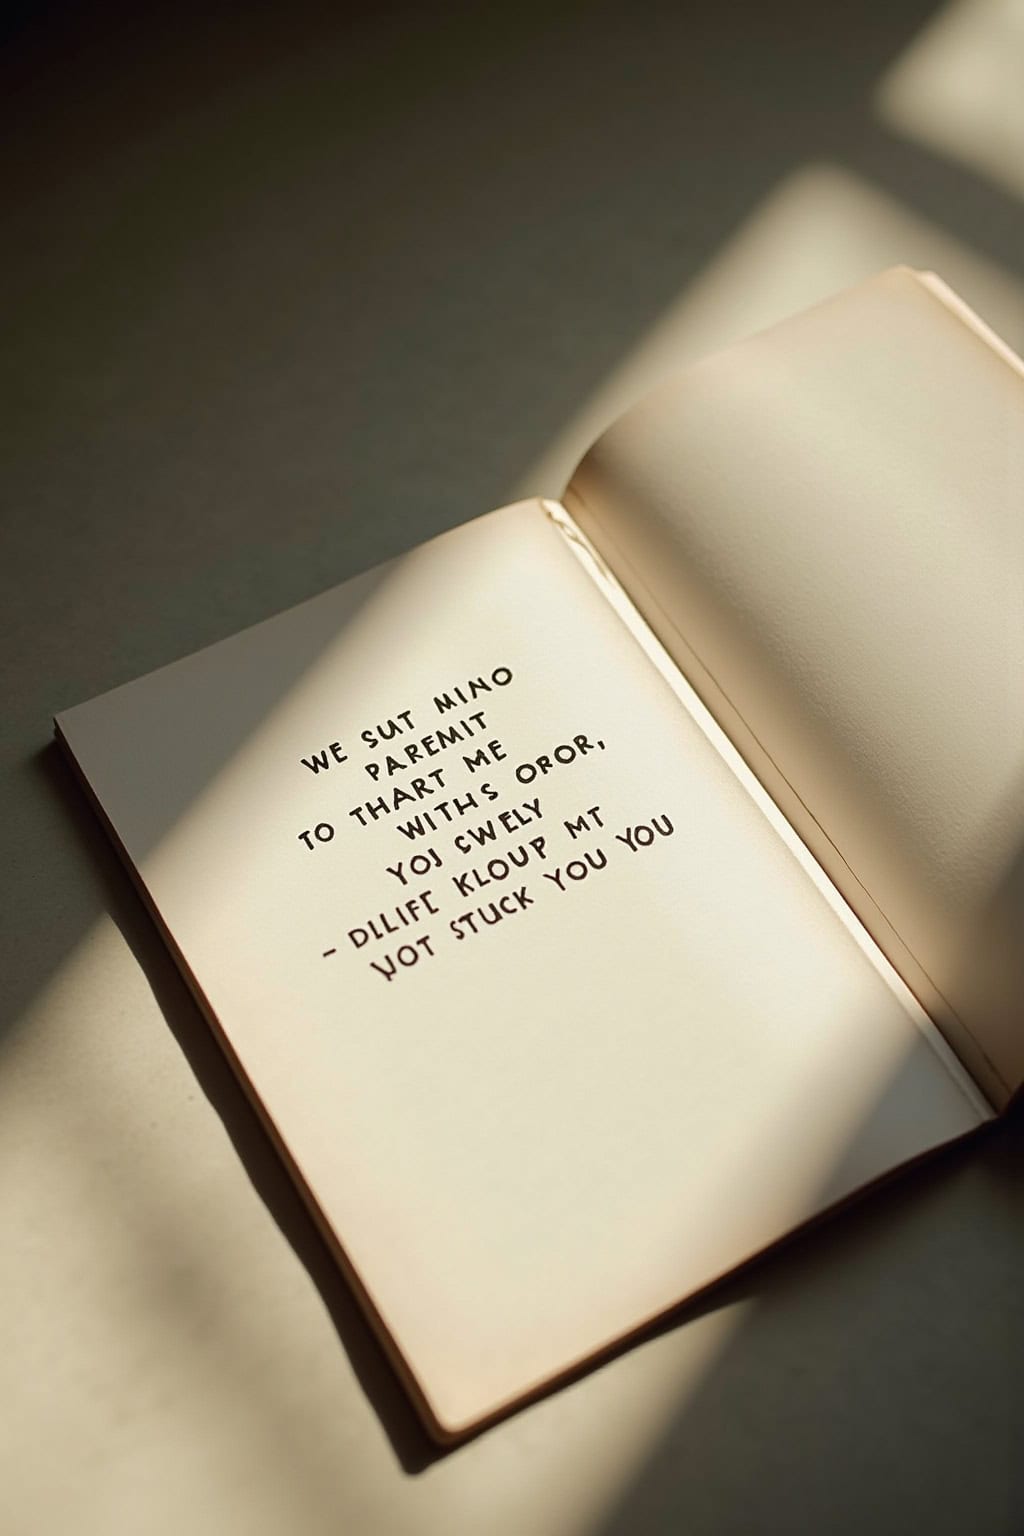 WE SUT MINO
PAREMIT
TO THART ME
WITHS OROR,
YOI SWELY
- DLLIFE KLOUP MT
NOT STUCK YOU YOU